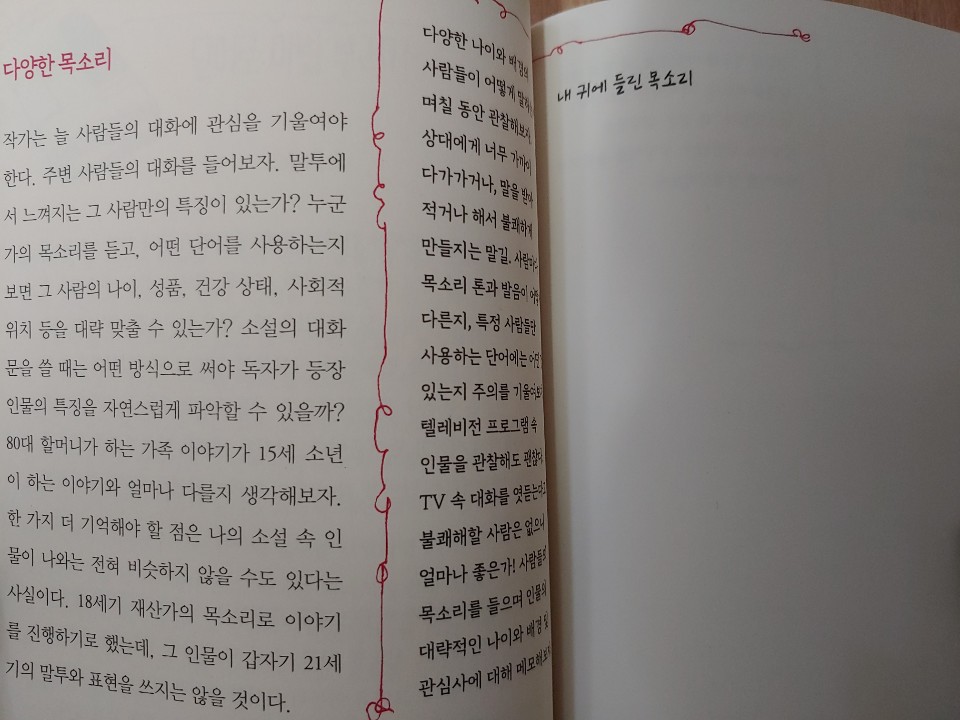 다양한 목소리
작가는 늘 사람들의 대화에 관심을 기울여야
한다. 주변 사람들의 대화를 들어보자. 말투에
서 느껴지는 그 사람만의 특징이 있는가? 누군
가의 목소리를 듣고, 어떤 단어를 사용하는지
보면 그 사람의 나이, 성품, 건강 상태, 사회적
위치 등을 대략 맞출 수 있는가? 소설의 대화
문을 쓸 때는 어떤 방식으로 써야 독자가 등장
인물의 특징을 자연스럽게 파악할 수 있을까?
80대 할머니가 하는 가족 이야기가 15세 소년
이 하는 이야기와 얼마나 다를지 생각해보자.
한 가지 더 기억해야 할 점은 나의 소설 속 인
물이 나와는 전혀 비슷하지 않을 수도 있다는
사실이다. 18세기 재산가의 목소리로 이야기
를 진행하기로 했는데, 그 인물이 갑자기 21세
기의 말투와 표현을 쓰지는 않을 것이다.
다양한 나이와 배경의
사람들이 어떻게
며칠 동안 관찰해보자.
상대에게 너무 가까이
다가가거나, 말을 받아
적거나 해서 불쾌하게
만들지는 말길.
목소리 톤과 발음이
다른지, 특정 사람들만
사용하는 단어에는
있는지 주의를
텔레비전 프로그램 속
인물을 관찰해도 괜찮다.
TV 속 대화를 엿듣는다고
불쾌해할 사람은 없으니
얼마나 좋은가! 사람들의
목소리를 들으며 인물의
대략적인 나이와 배경 및
관심사에 대해 메모해보자
내 귀에 들린 목소리